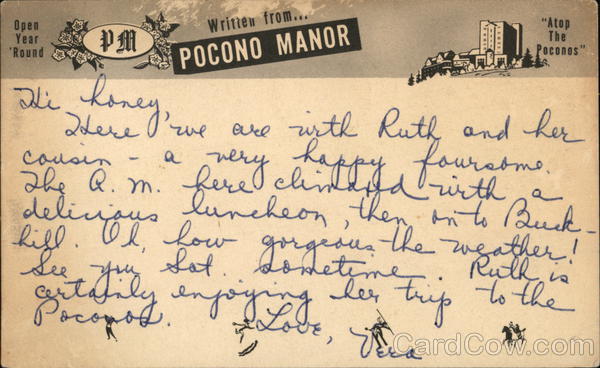 Open
Year
'Round
PM
Written from...
POCONO MANOR
"Atop
The
Poconos"
Hi honey,
Here 'we are with Ruth and her
cousin - a very happy foursome.
The A.M. here climaxed with a
delicious luncheon, then on to Buck-
hill. Oh, how gorgeous the weather!
See you Sat. sometime. Ruth is
certainly enjoying her trip to the
Poconos.
Love,
Vera
CardCow.com